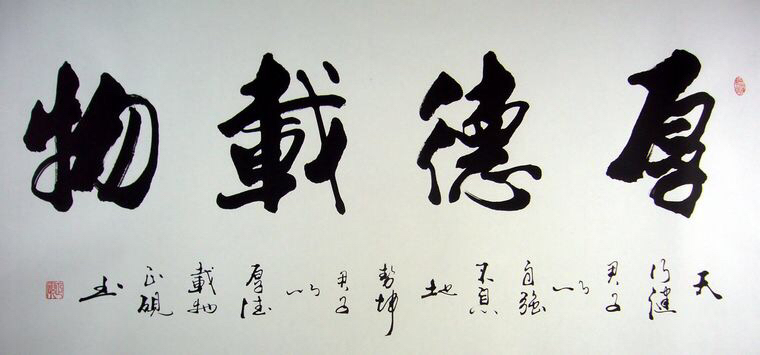 厚德載物
天行健君子以自强不息地勢坤君子以厚德載物正硯书